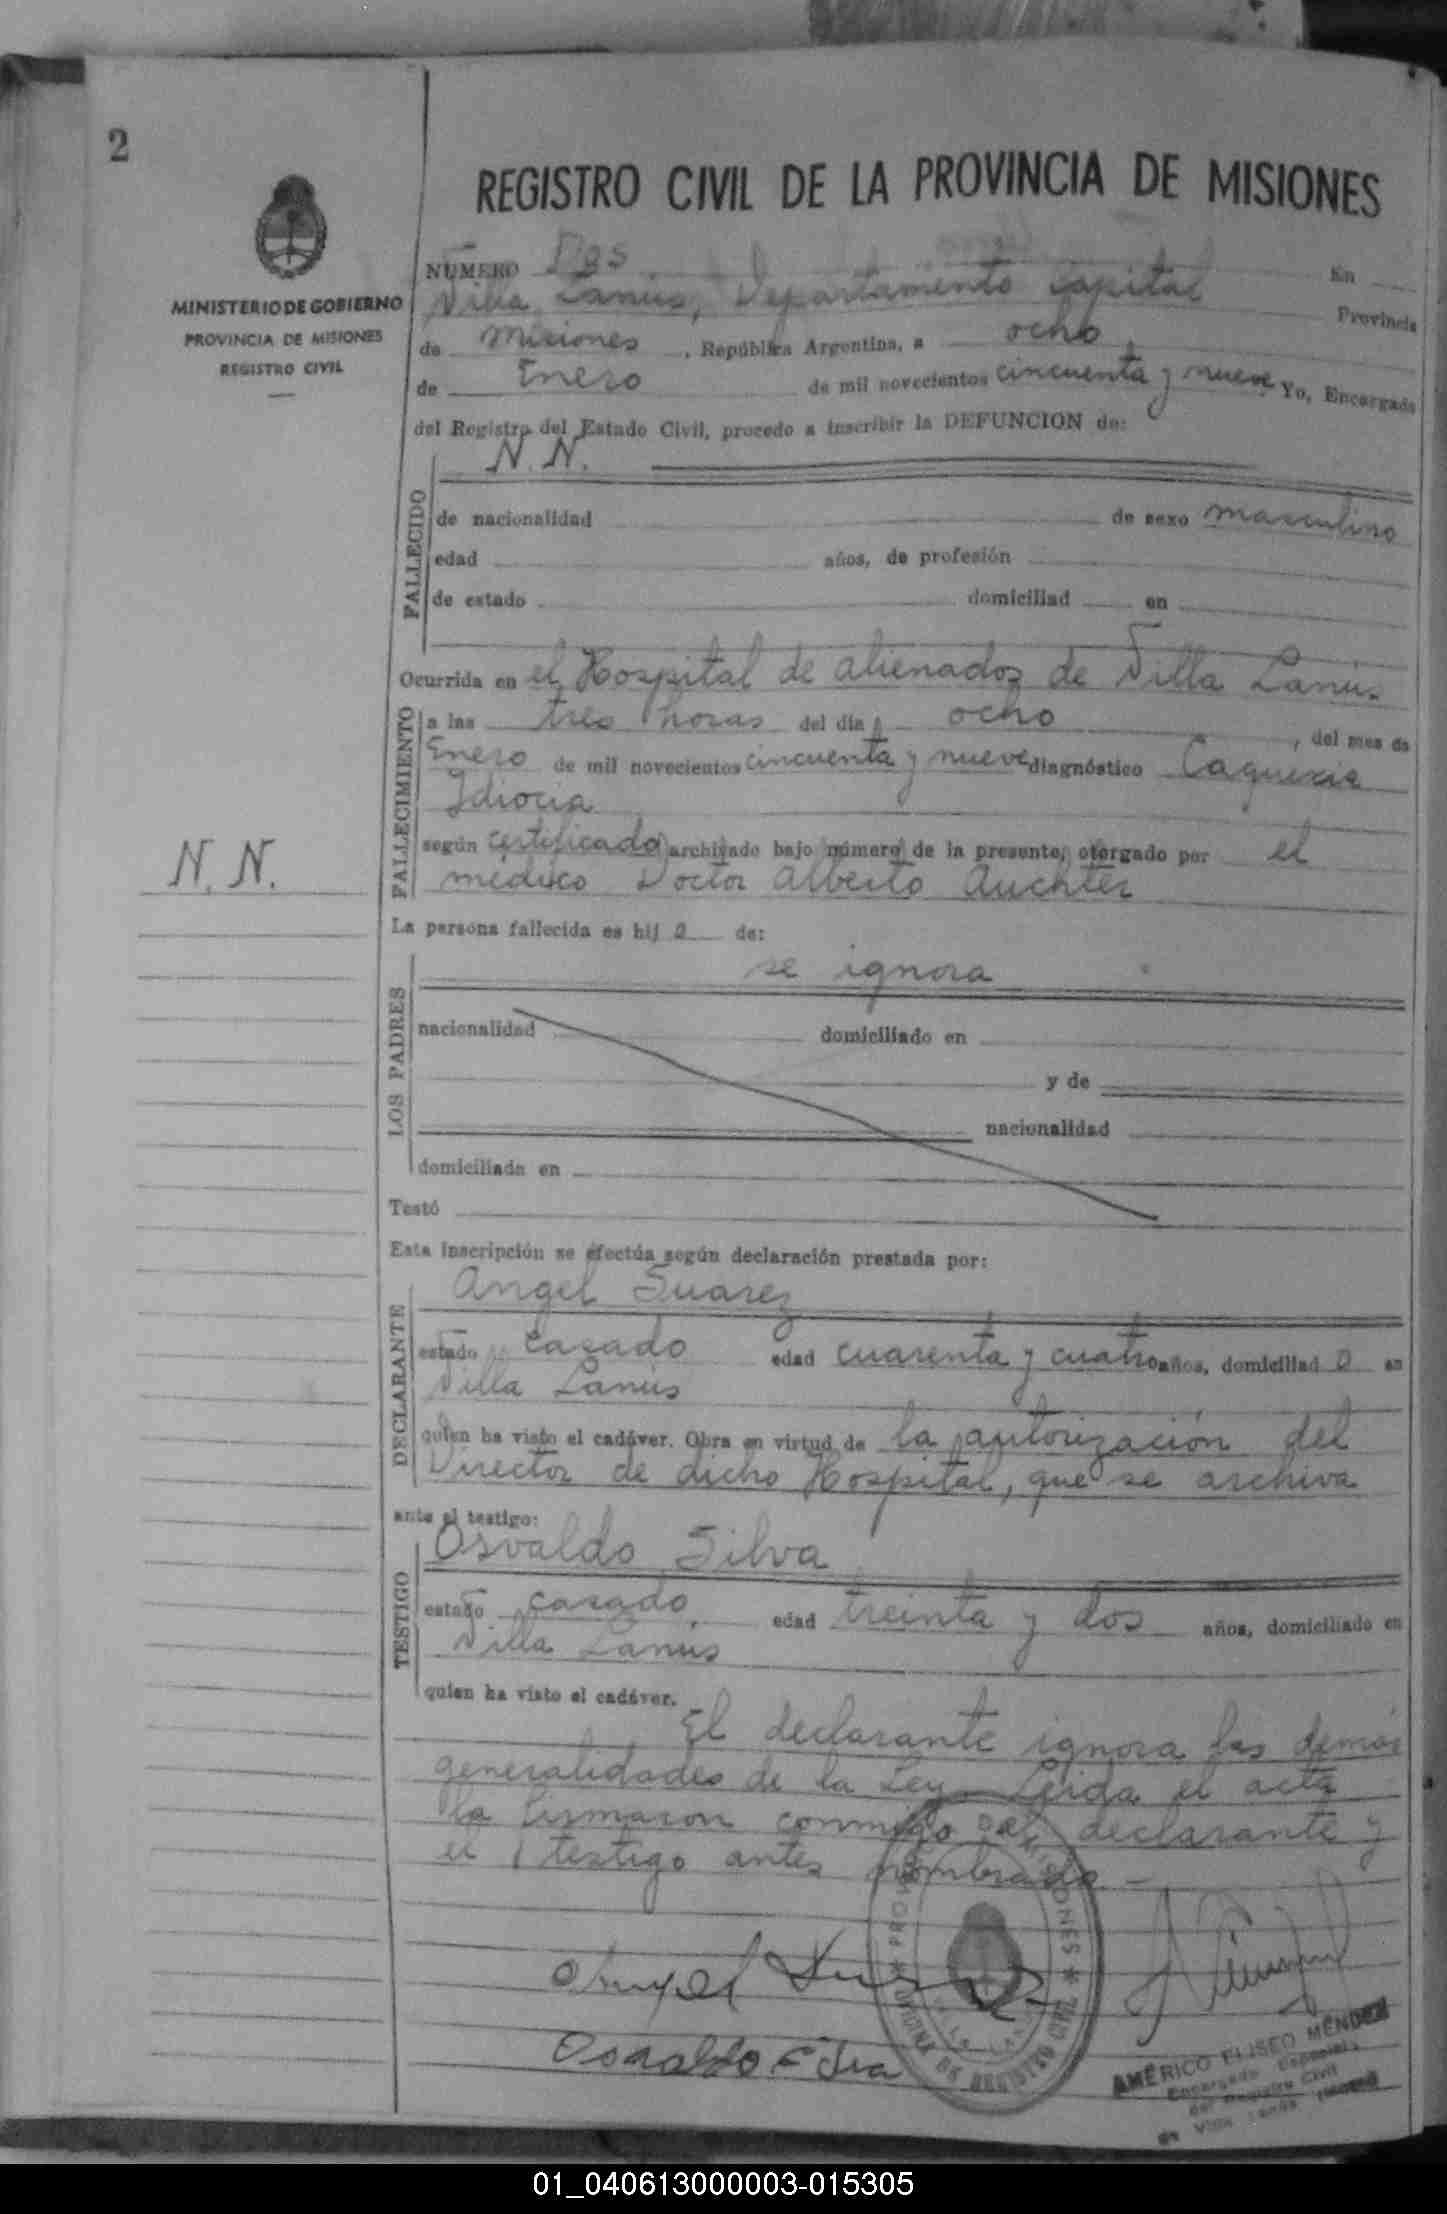 2
REGISTRO CIVIL DE LA PROVINCIA DE MISIONES
MINISTERIO DE GOBIERNO
PROVINCIA DE MISIONES
REGISTRO CIVIL
NUMERO Dos En
Villa Lanús, Departamento Capital Provincia
de Misiones, República Argentina, a ocho
de Enero de mil novecientos cincuenta y nueve Yo, Encargado
del Registro del Estado Civil, procedo a inscribir la DEFUNCION de:
N. N.
FALLECIDO
de nacionalidad de sexo masculino
edad años, de profesión
de estado domiciliad en
Ocurrida en el Hospital de alienados de Villa Lanús
FALLECIMIENTO
a las tres horas del día ocho, del mes de
Enero de mil novecientos cincuenta y nueve diagnóstico Caquexia
Idiocia
según certificado archivado bajo número de la presente, otorgado por el
médico Doctor Alberto Auchter
N. N.
La persona fallecida es hij o de:
LOS PADRES
se ignora
nacionalidad domiciliado en
y de
nacionalidad
domiciliada en
Testó
Esta inscripción se efectúa según declaración prestada por:
DECLARANTE
Angel Suarez
estado casado edad cuarenta y cuatro años, domiciliad o en
Villa Lanús
quien ha visto el cadáver. Obra en virtud de la autorización del
Director de dicho Hospital, que se archiva
ante el testigo:
TESTIGO
Osvaldo Silva
estado casado edad treinta y dos años, domiciliado en
Villa Lanús
quien ha visto el cadáver.
El declarante ignora las demás
generalidades de la Ley. Leida el acta
la firmaron conmigo el declarante y
el testigo antes nombrado.-
Angel Suarez
Osvaldo Silva
PROVINCIA DE MISIONES
OFICINA DE REGISTRO CIVIL
VILLA LANUS
AMÉRICO ELISEO MÉNDEZ
Encargado Especial
del Registro Civil
de Villa Lanús
01_040613000003-015305